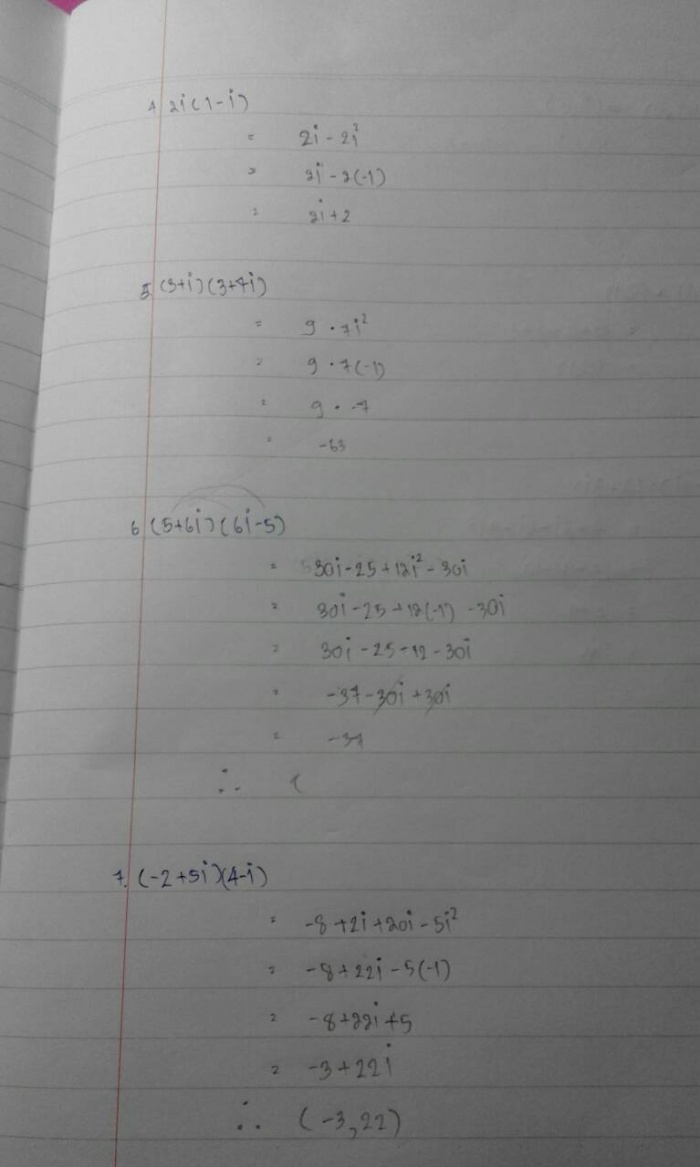 4. 2i(1-i)
= 2i - 2i²
= 2i - 2(-1)
= 2i+2
5. (3+i)(3+4i)
= 9 · 7i²
= 9 · 7(-1)
= 9 · -7
= -63
6. (5+6i)(6i-5)
= 30i-25+12i² - 30i
= 30i-25+12(-1) -30i
= 30i-25-12-30i
= -37-30i+30i
= -37
∴ (
7. (-2+5i)(4-i)
= -8+2i+20i-5i²
= -8+22i-5(-1)
= -8+22i+5
= -3+22i
∴ (-3,22)